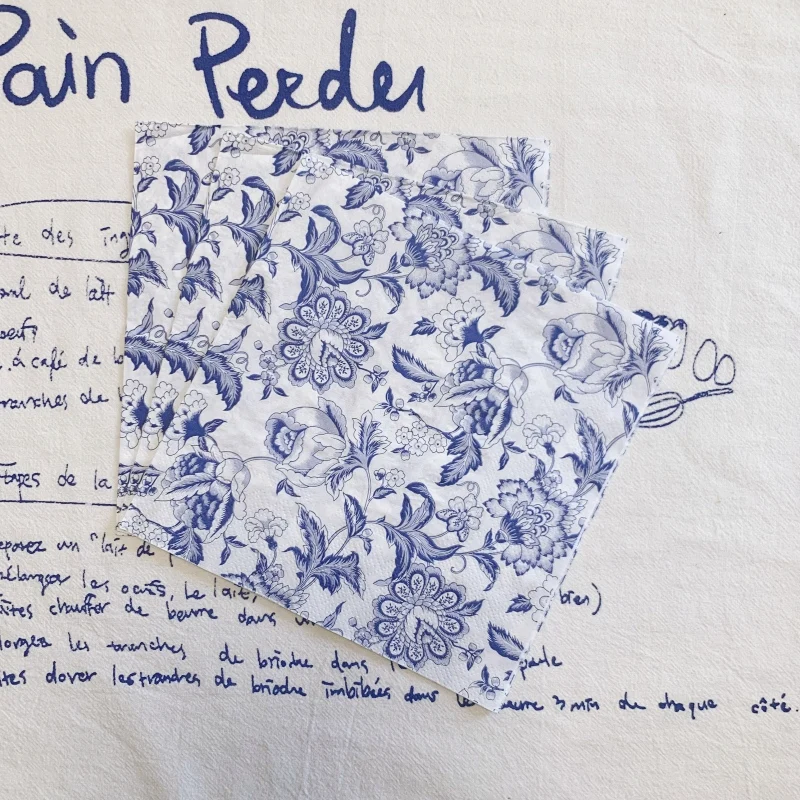 Pain Perdu
te des ing
de lait
oeufs
à café de b
tranches de
tapes de la
eparez un "lait de
élangez les oeufs, le lait, bien)
aites chauffer de beurre dans
longez les tranches de brioche dans
tes dorer les tranches de brioche imbibées dans le beurre 3 min de chaque côté.